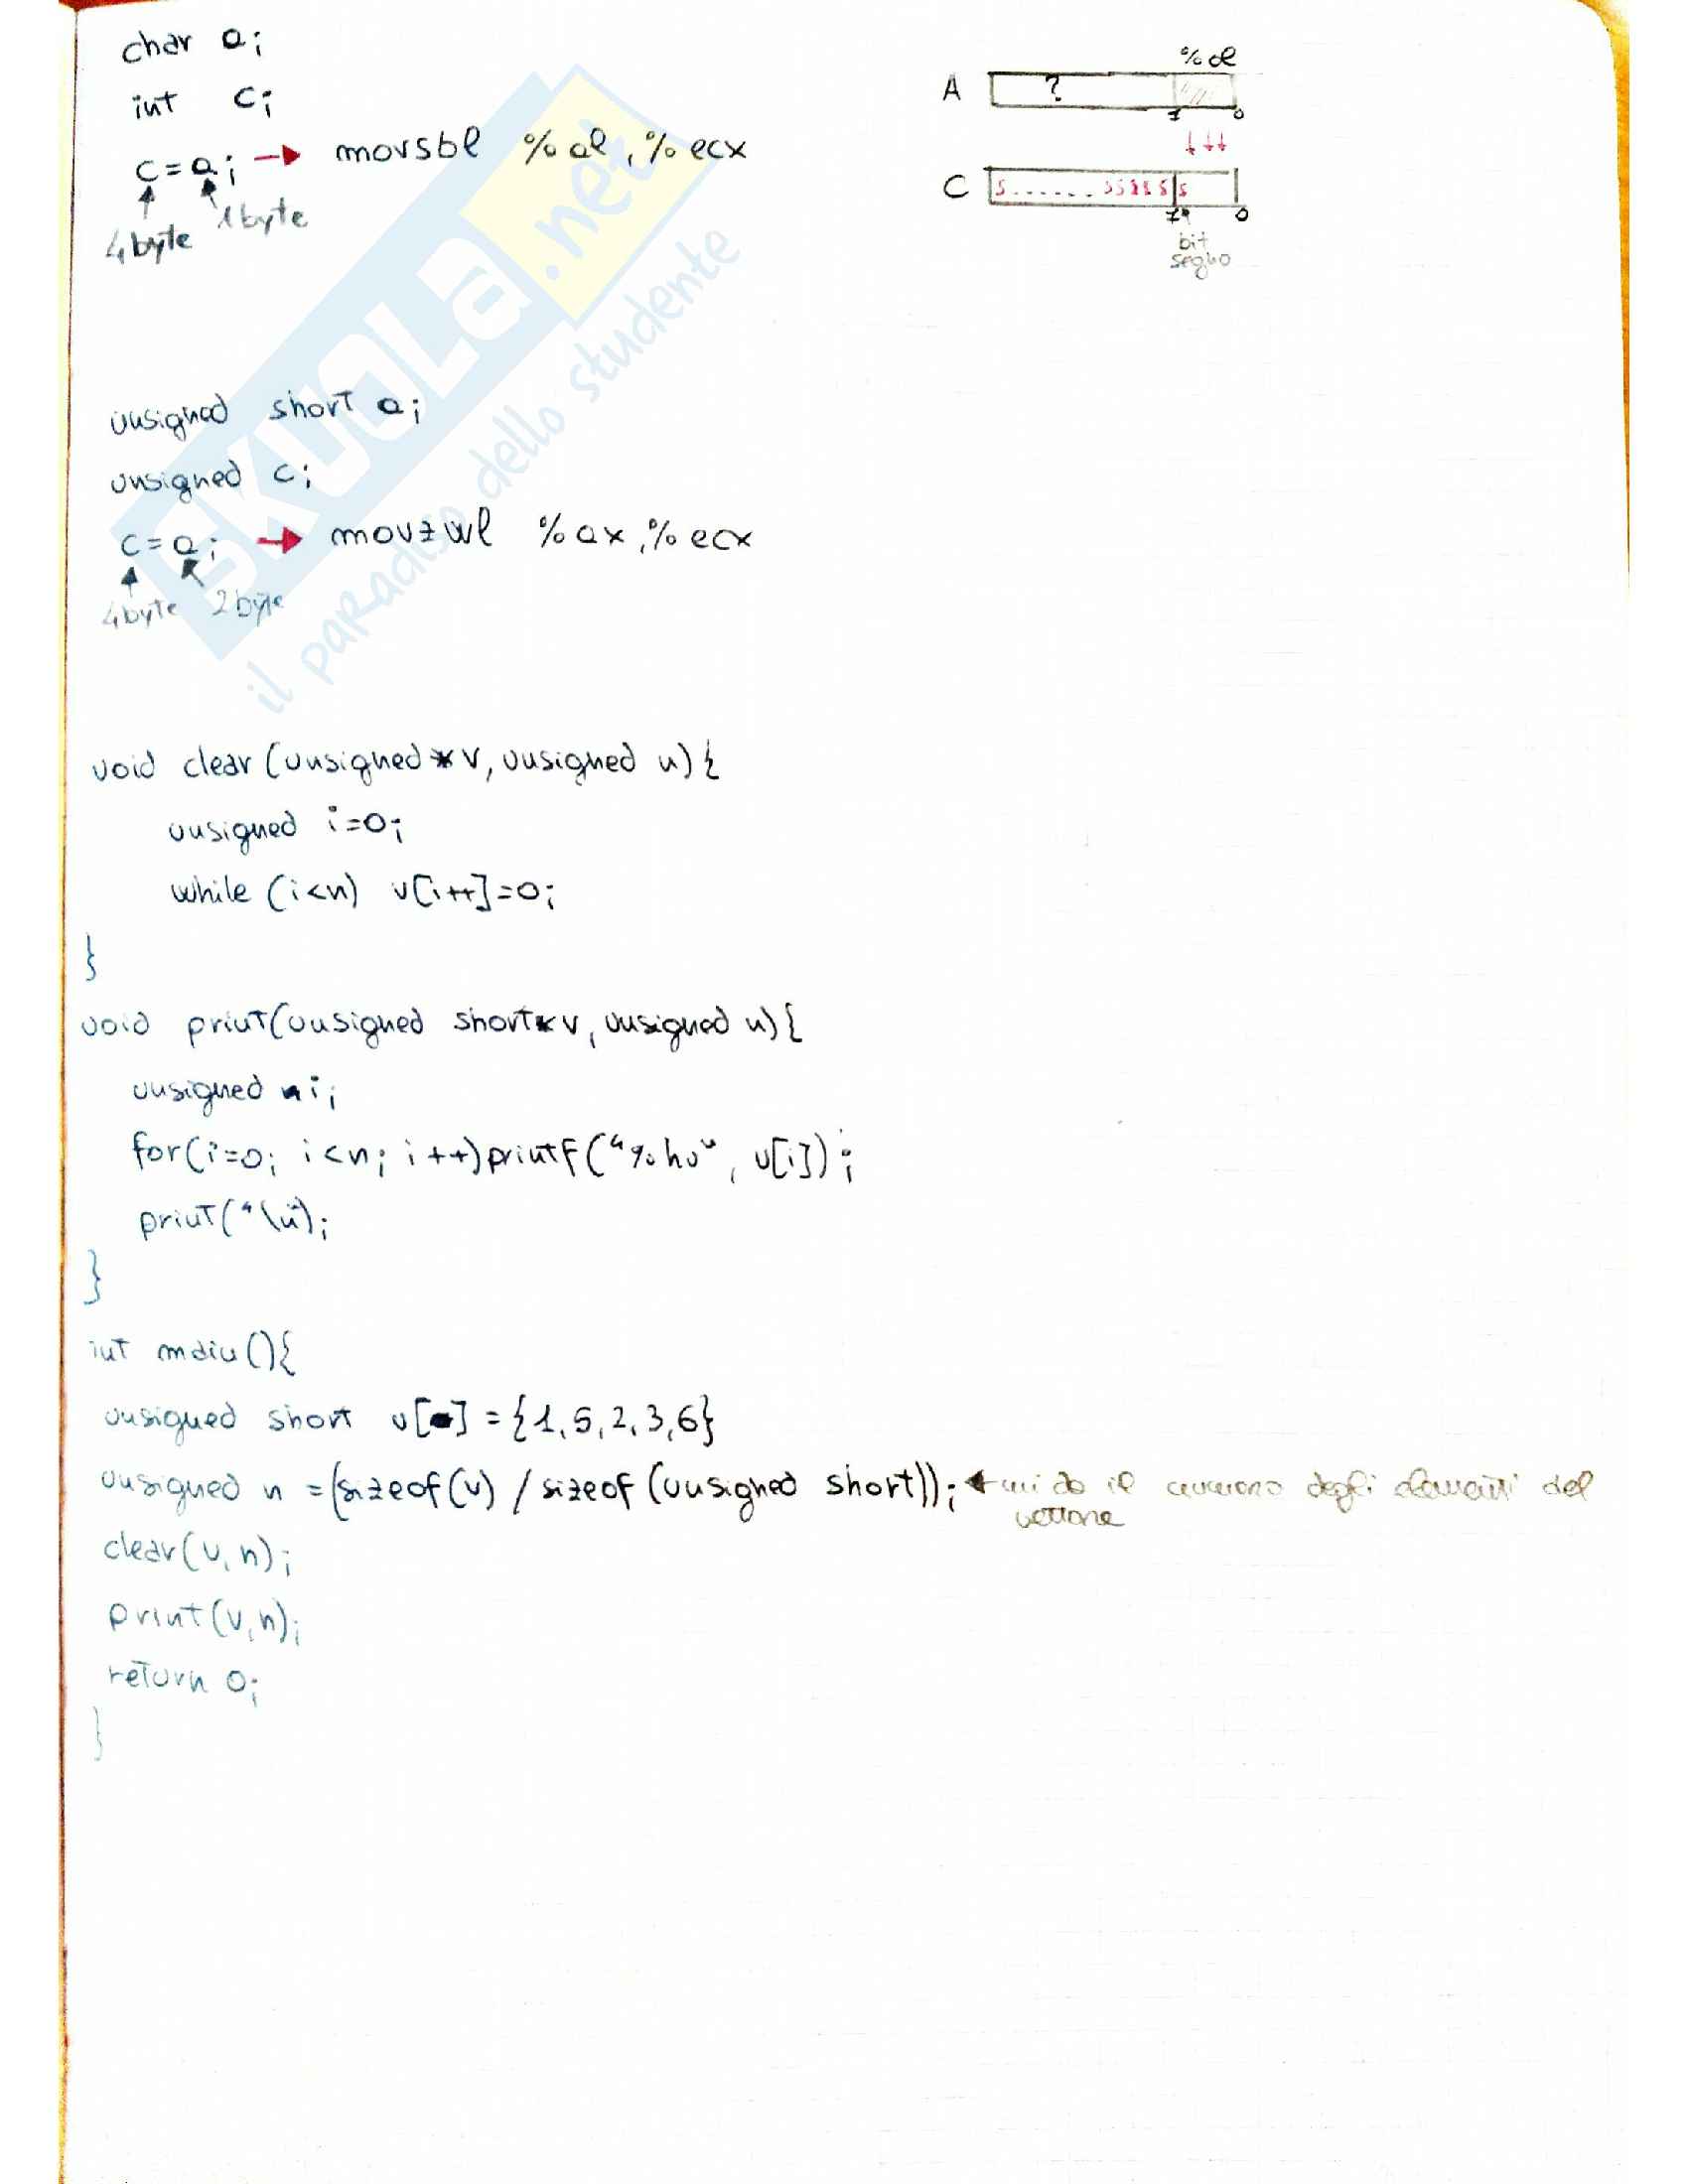 char a;
int c;
c=a; → movsbl %al, %ecx
4byte 1byte
%al
A ? 7 0
C s.......sssss s 7 0
bit
segno
SKUOLa.net
il paradiso dello studente
unsigned short a;
unsigned c;
c=a; → movzwl %ax, %ecx
4byte 2byte
void clear (unsigned* v, unsigned n){
unsigned i=0;
while (i<n) v[i++]=0;
}
void print(unsigned short* v, unsigned n){
unsigned i;
for(i=0; i<n; i++)printf("%hu", v[i]);
print("\n");
}
int main(){
unsigned short v[] = {1,5,2,3,6}
unsigned n = (sizeof(v) / sizeof (unsigned short)); ← mi dà il numero degli elementi del
vettore
clear(v,n);
print(v,n);
return 0;
}